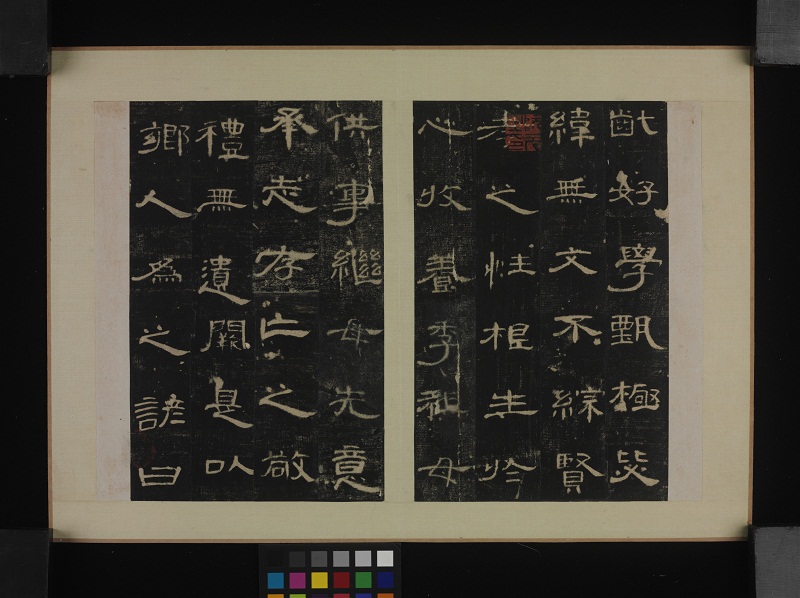 齔好學甄極毖
緯無文不綜賢
孝之性根生於
心收養季祖母
供事繼母先意
承志存亡之敬
禮無遺闕是以
鄉人為之諺曰